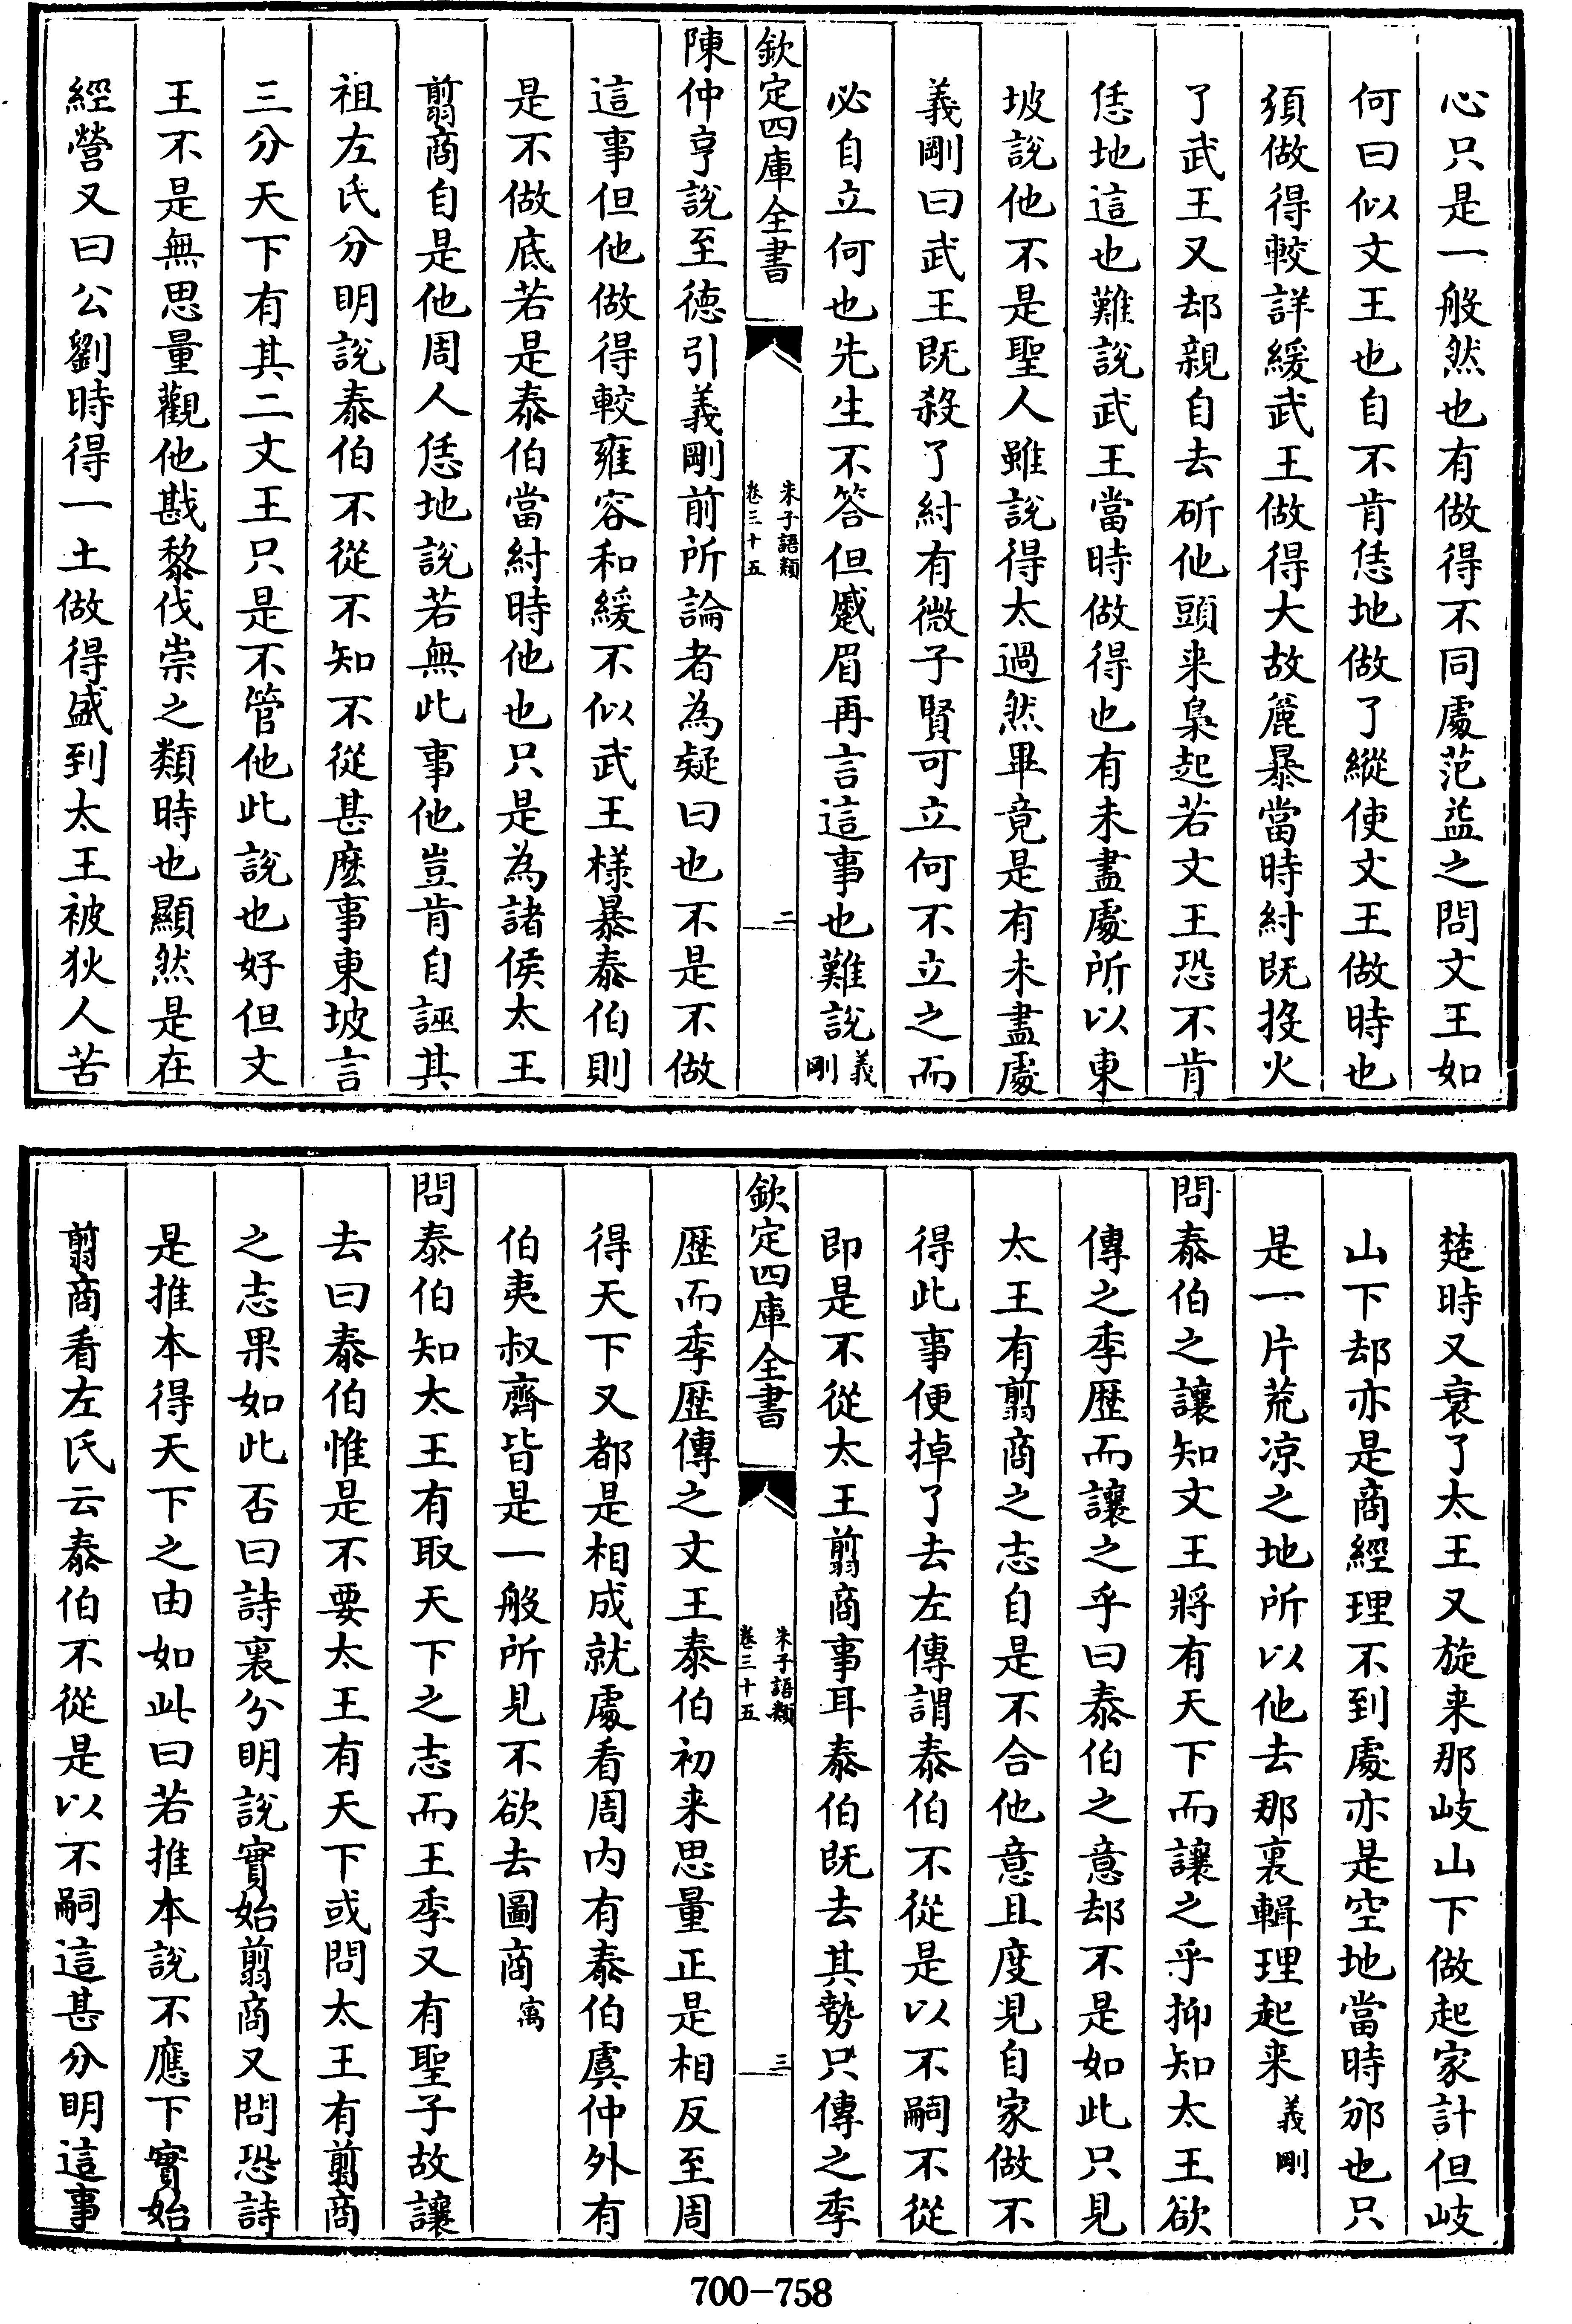 心只是一般然也有做得不同處范益之問文王如
何曰似文王也自不肯恁地做了縱使文王做時也
須做得較詳緩武王做得大故麄暴當時紂既投火
了武王又却親自去斫他頭来梟起若文王恐不肯
恁地這也難說武王當時做得也有未盡處所以東
坡說他不是聖人雖說得太過然畢竟是有未盡處
義剛曰武王既殺了紂有微子賢可立何不立之而
必自立何也先生不答但蹙眉再言這事也難說義剛
欽定四庫全書 朱子語類卷三十五 二
陳仲亨說至德引義剛前所論者為疑曰也不是不做
這事但他做得較雍容和緩不似武王様暴泰伯則
是不做底若是泰伯當紂時他也只是為諸侯太王
翦商自是他周人恁地說若無此事他豈肯自誣其
祖左氏分明說泰伯不從不知不從甚麽事東坡言
三分天下有其二文王只是不管他此說也好但文
王不是無思量觀他戡黎伐崇之類時也顯然是在
經營又曰公劉時得一土做得盛到太王被狄人苦
楚時又衰了太王又旋来那岐山下做起家計但岐
山下却亦是商經理不到處亦是空地當時邠也只
是一片荒凉之地所以他去那裏輯理起来義剛
問泰伯之讓知文王將有天下而讓之乎抑知太王欲
傳之季歴而讓之乎曰泰伯之意却不是如此只見
太王有翦商之志自是不合他意且度見自家做不
得此事便掉了去左傳謂泰伯不從是以不嗣不從
即是不從太王翦商事耳泰伯既去其勢只傳之季
欽定四庫全書 朱子語類卷三十五 三
歴而季歴傳之文王泰伯初来思量正是相反至周
得天下又都是相成就處看周内有泰伯虞仲外有
伯夷叔齊皆是一般所見不欲去圖商㝢
問泰伯知太王有取天下之志而王季又有聖子故讓
去曰泰伯惟是不要太王有天下或問太王有翦商
之志果如此否曰詩裏分明說實始翦商又問恐詩
是推本得天下之由如此曰若推本說不應下實始
翦商看左氏云泰伯不從是以不嗣這甚分明這事
700-758